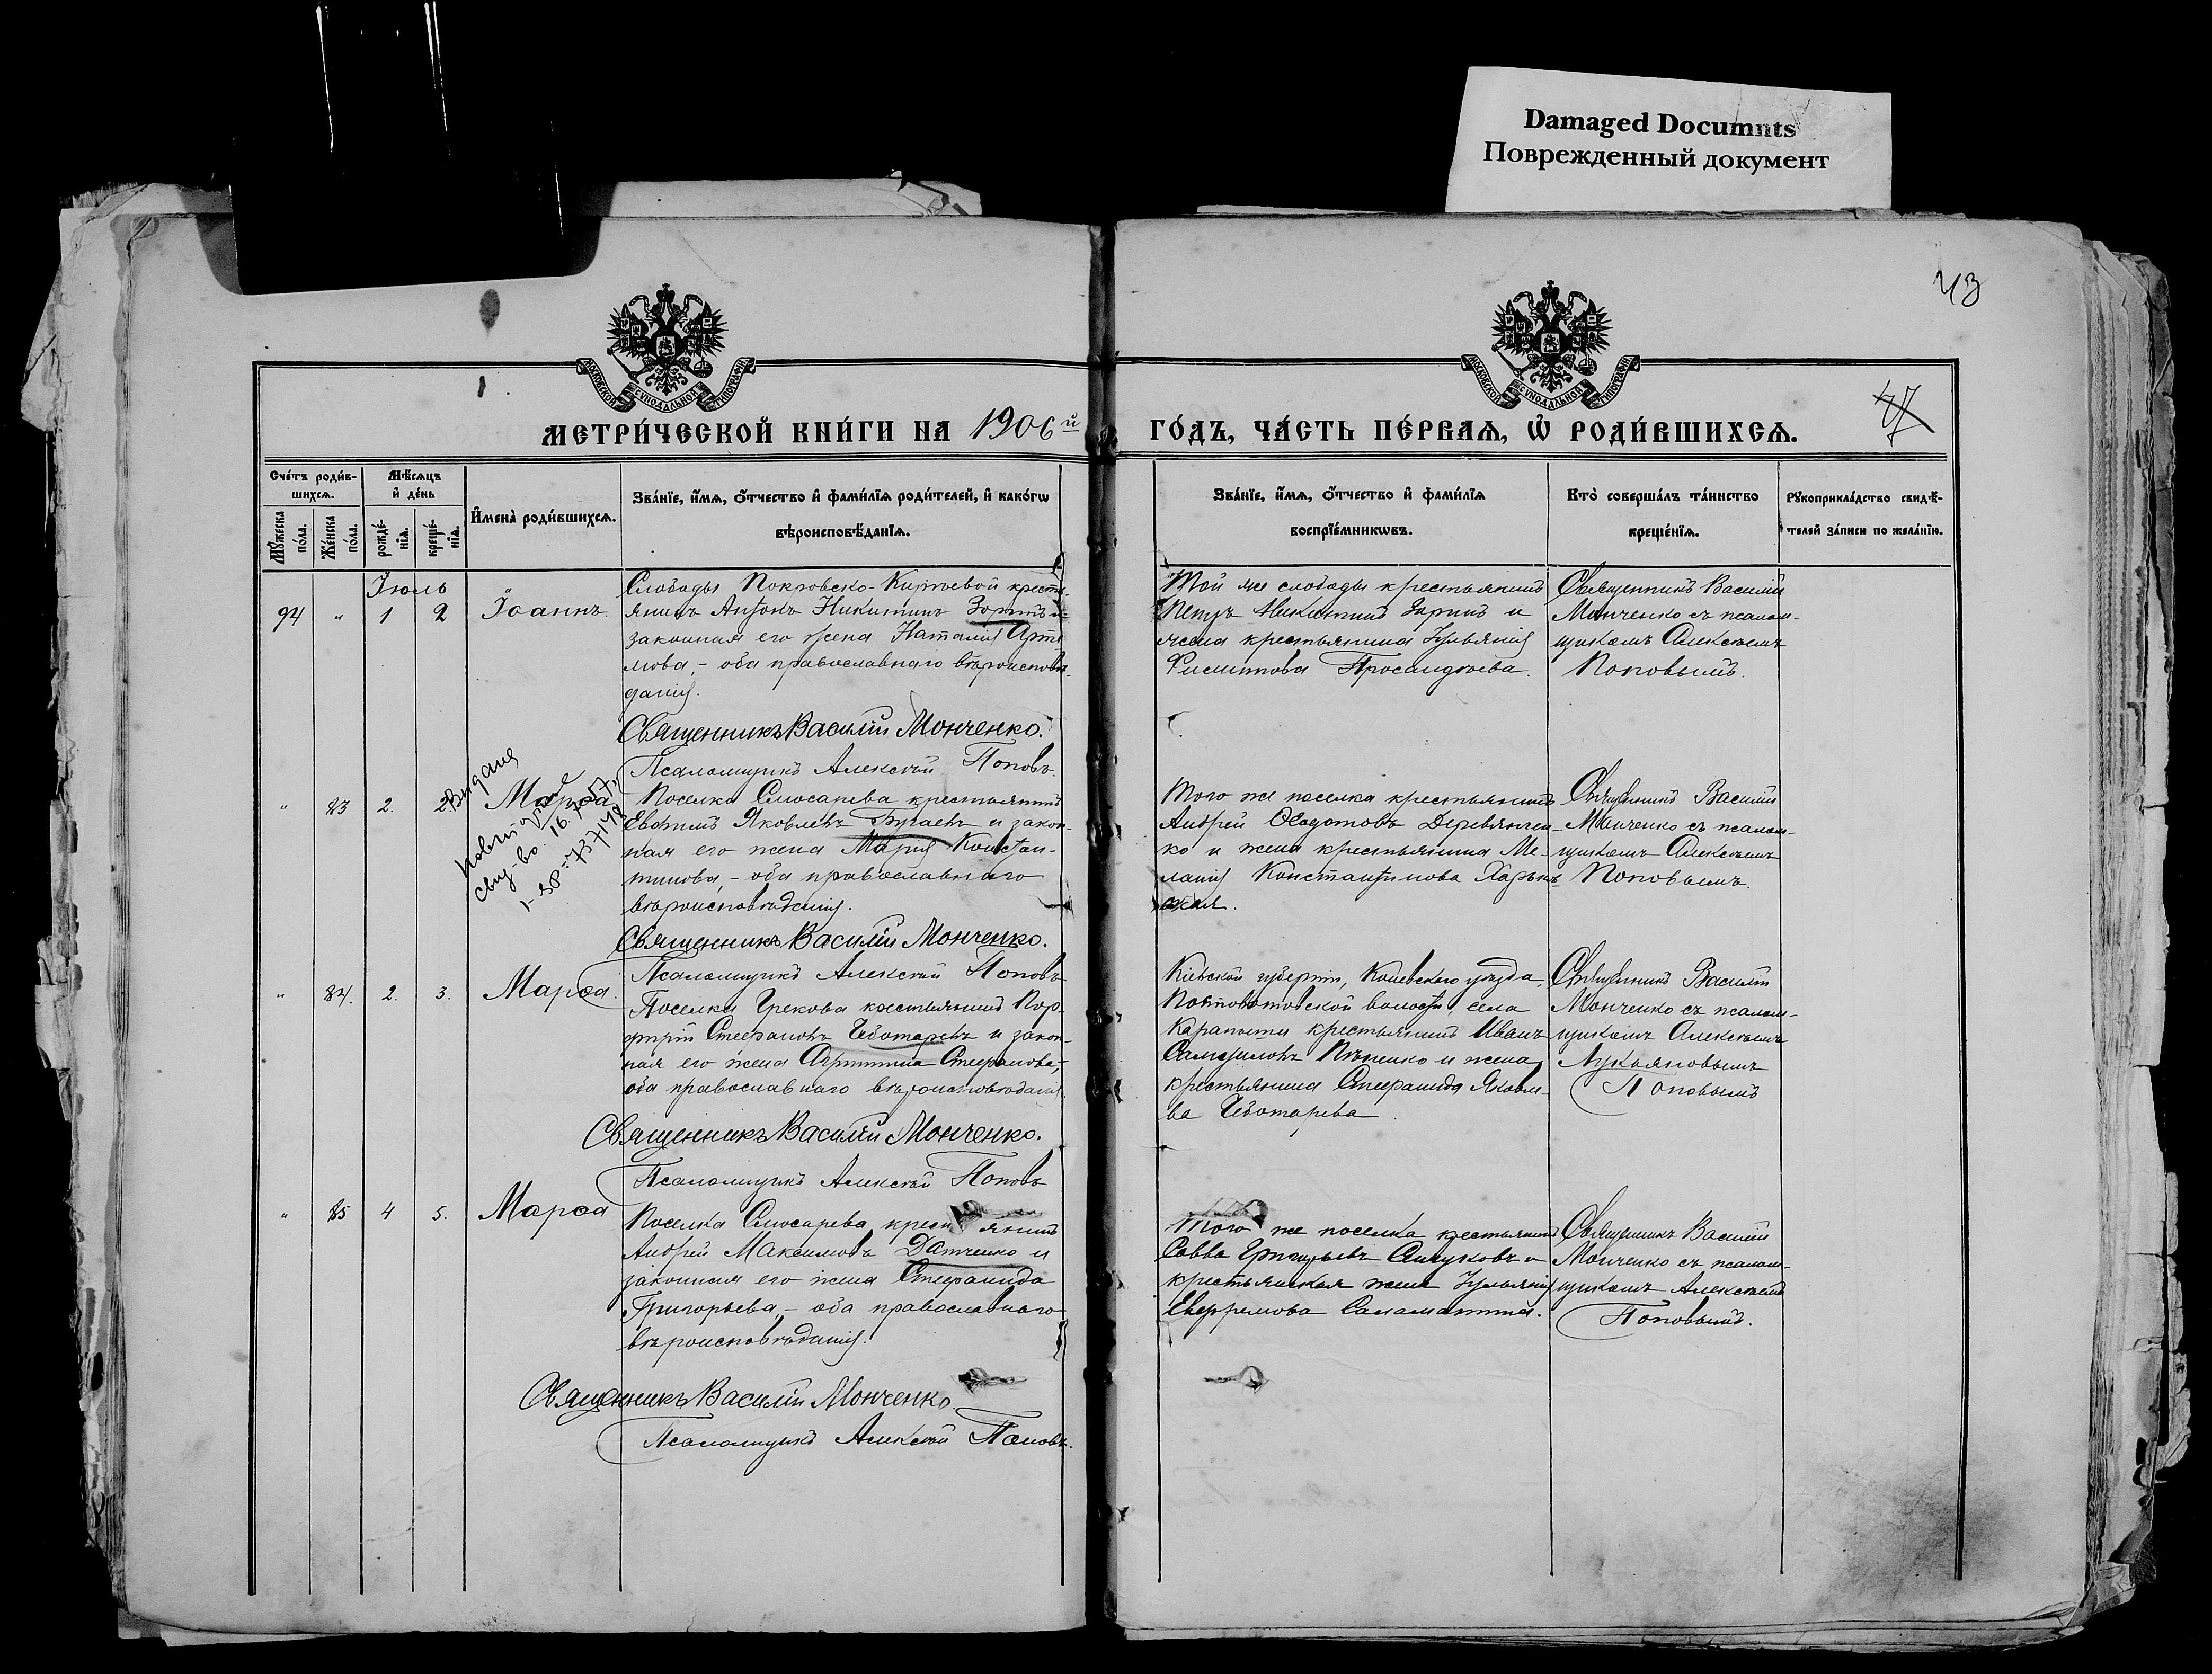 Damaged Documnts
Поврежденный документ
43
МОСКОВСКОЙ СѴНОДАЛЬНОЙ ТИПОГРАФІИ
МОСКОВСКОЙ СѴНОДАЛЬНОЙ ТИПОГРАФІИ
47
МЕТРИ́ЧЕСКОЙ КНИ́ГИ НА 1906й ГО́ДЪ, ЧА́СТЬ ПЕ́РВАѦ, Ѽ РОДИ́ВШИХСѦ.
Сче́тъ роди́в-
шихсѧ.
Мѣ́сѧцъ
и҆ де́нь
И҆мена̀ роди́вшихсѧ.
Зва́нїе, и҆́мѧ, ѻ҆́тчество и҆ фами́лїѧ роди́телей, и҆ како́гѡ
вѣроисповѣ́данїѧ.
Мꙋ́жеска
по́ла.
Же́нска
по́ла.
рожде́-
нїѧ.
креще́-
нїѧ.
Зва́нїе, и҆́мѧ, ѻ҆́тчество и҆ фами́лїѧ
воспрїе́мникѡвъ.
Кто̀ соверша́лъ та́инство
креще́нїѧ.
Рꙋкоприкла́дство свидѣ́-
телей за́писи по жела́нїю.
Іюль
94 " 1 2 Іоаннъ.
Слободы Покровско-Киреевой кресть-
янинъ Антонъ Никитинъ и
законная его жена Наталія Арте-
мова, - оба православнаго вѣроисповѣ-
данія.
Священникъ Василій Монченко.
Псаломщикъ Алексѣй Поповъ.
Той же слободы крестьянинъ
Петръ Никитинъ и
жена крестьянина Ульянія
Священникъ Василій
Монченко съ псалом-
щикомъ Алексѣемъ
Поповымъ.
" 83 2. 2. Марѳа
16. 7. 57
Поселка Слюсарева крестьянинъ
Евфимъ Яковлевъ Бугаевъ и закон-
ная его жена Марія Констан-
тинова, - оба православнаго
вѣроисповѣданія.
Священникъ Василій Монченко.
Псаломщикъ Алексѣй Поповъ
Того же поселка крестьянинъ
Андрей Ѳедотовъ Деревянчен-
ко и жена крестьянина Ме-
ланія Константинова
Священникъ Василій
Монченко съ псалом-
щикомъ Алексѣемъ
Поповымъ.
" 84. 2. 3. Марѳа.
Поселка Грекова крестьянинъ Пор-
фирій Стефановъ Чеботаревъ и закон-
ная его жена Стефанова, -
оба православнаго вѣроисповѣданія.
Священникъ Василій Монченко.
Псаломщикъ Алексѣй Поповъ
Кіевской губерніи, уѣзда,
волости, села
крестьянинъ Иванъ
и жена
крестьянина Стефанида Яковле-
ва Чеботарева.
Священникъ Василій
Монченко съ псалом-
щикомъ Алексѣемъ
Лукьяновымъ
Поповымъ
" 85 4 5. Марѳа
Поселка Слюсарева, крестьянинъ
Андрей Максимовъ Датченко и
законная его жена Стефанида
Григорьева, - оба православнаго
вѣроисповѣданія.
Священникъ Василій Монченко.
Псаломщикъ Алексѣй Поповъ.
Того же поселка крестьянинъ
Савва Григорьевъ и
крестьянская жена Ульянія
Евфремова
Священникъ Василій
Монченко съ псалом-
щикомъ Алексѣемъ
Поповымъ.